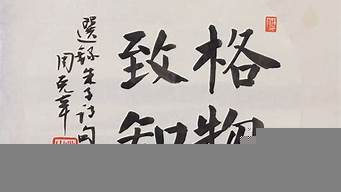 格物
致知
選錄朱子詩句
周克華